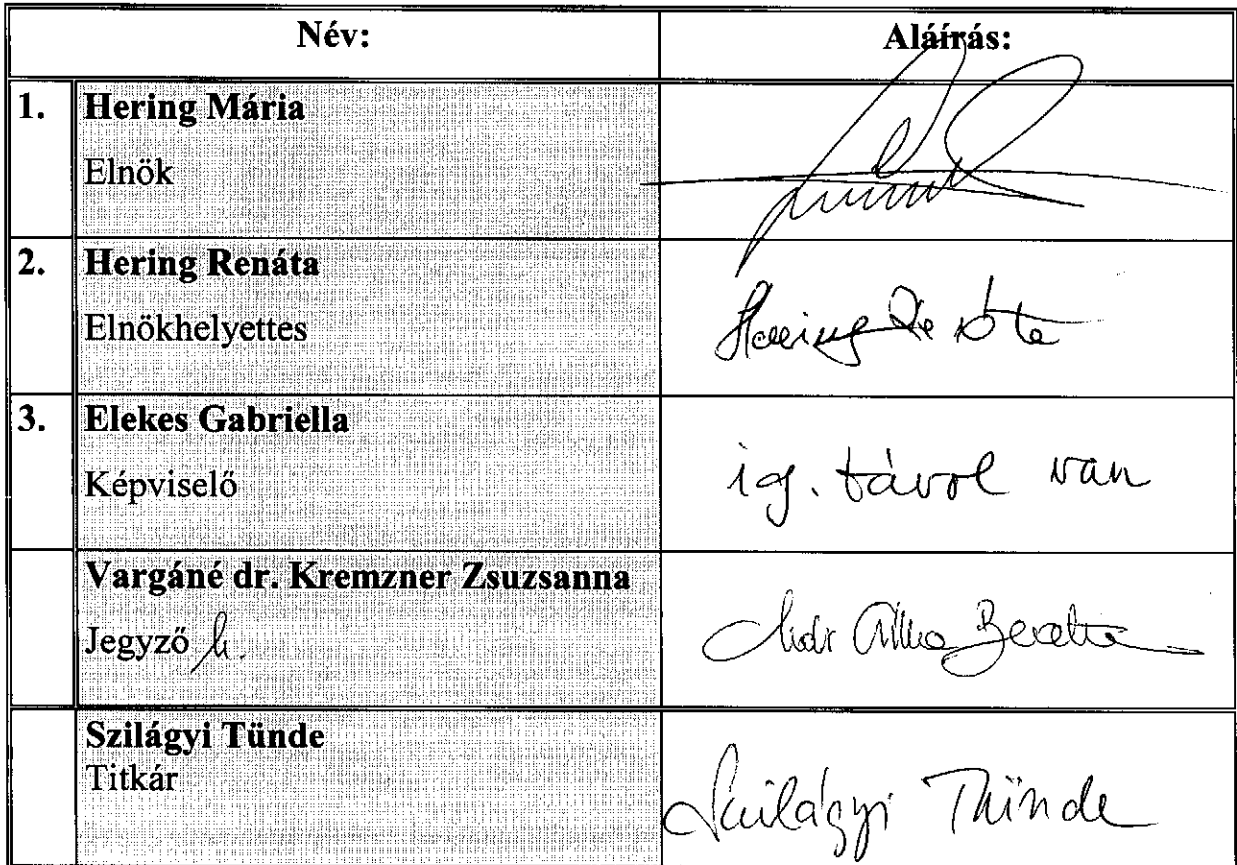 Név: Aláírás:
1. Hering Mária
Elnök
2. Hering Renáta
Elnökhelyettes Hering Renáta
3. Elekes Gabriella
Képviselő ig. távol van
Vargáné dr. Kremzner Zsuzsanna
Jegyző h.
Szilágyi Tünde
Titkár Szilágyi Tünde